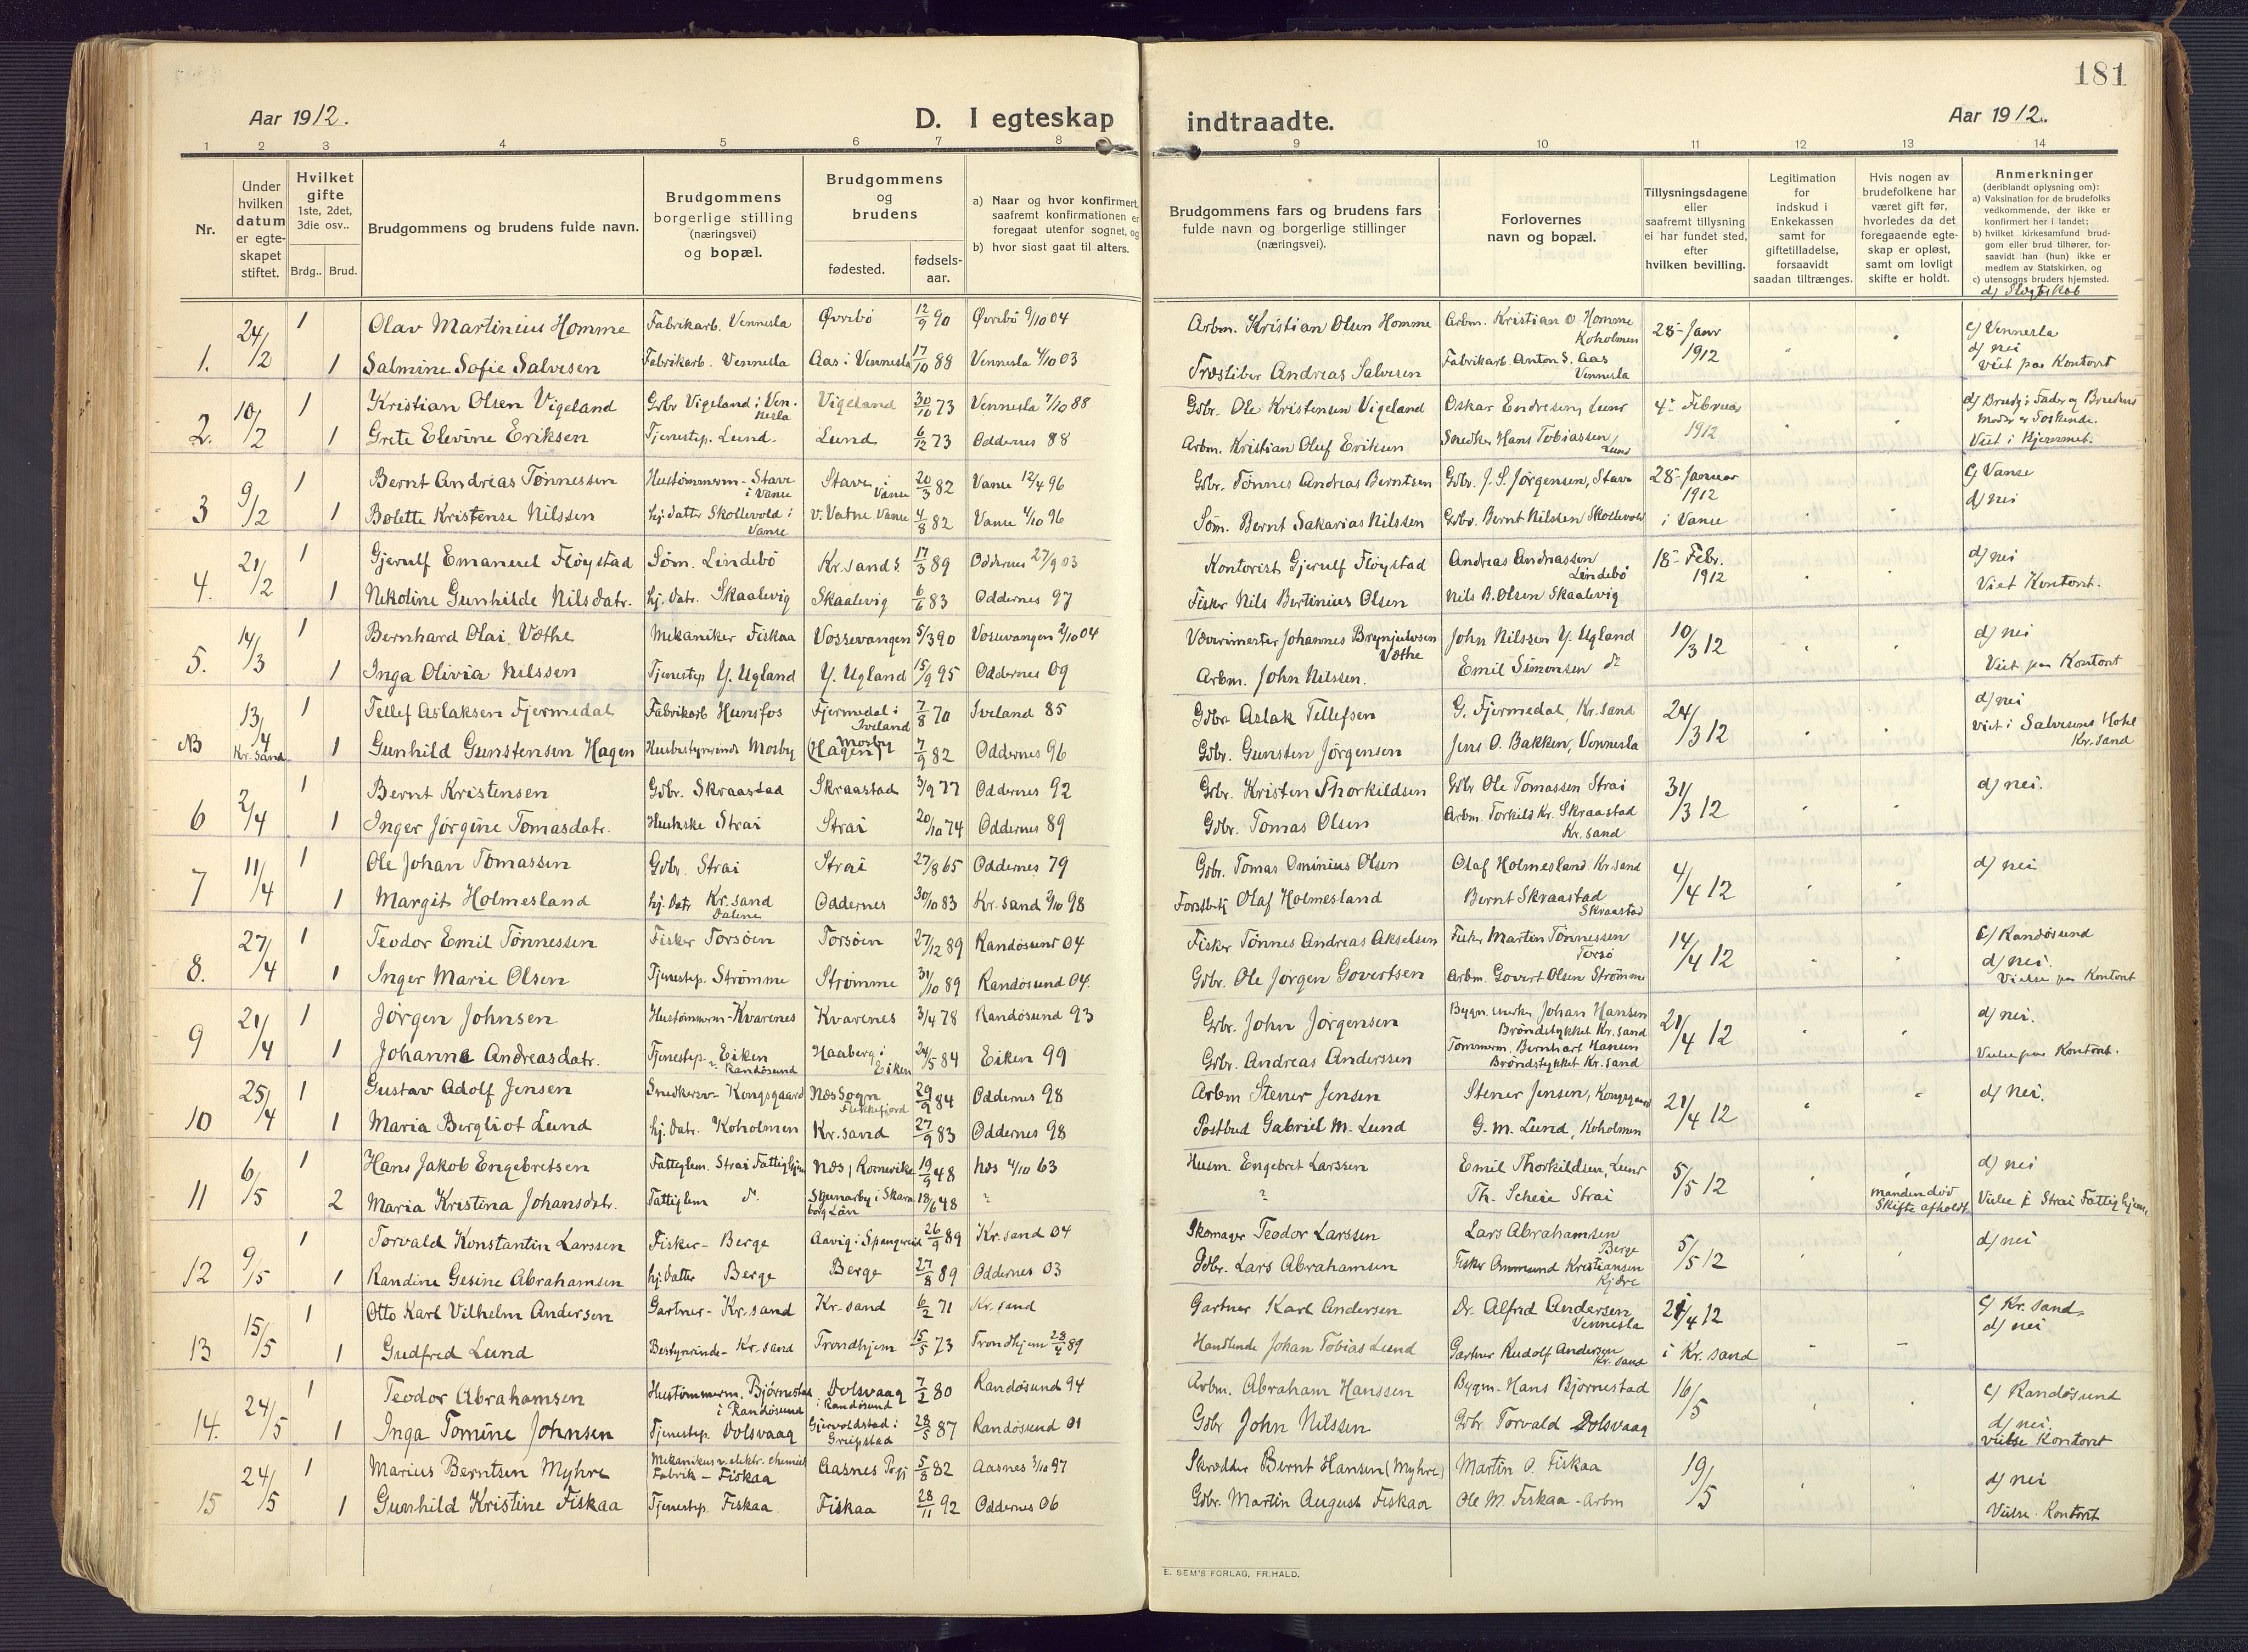 181
Aar 1912.
D. I egteskap indtraadte.
Aar 1912.
1 2 3 4 5 6 7 8 9 10 11 12 13 14
Nr.
Under hvilken datum er egte-skapet stiftet.
Hvilket gifte 1ste, 2det, 3die osv..
Brdg.. Brud.
Brudgommens og brudens fulde navn.
Brudgommens borgerlige stilling (næringsvei) og bopæl.
Brudgommens og brudens
fødested. fødsels-aar.
a) Naar og hvor konfirmert, saafremt konfirmationen er foregaat utenfor sognet, og
b) hvor sidst gaat til alters.
Brudgommens fars og brudens fars fulde navn og borgerlige stillinger (næringsvei).
Forlovernes navn og bopæl.
Tillysningsdagene eller saafremt tillysning ei har fundet sted, efter hvilken bevilling.
Legitimation for indskud i Enkekassen samt for giftetilladelse, forsaavidt saadan tiltrænges.
Hvis nogen av brudefolkene har været gift før, hvorledes da det foregaaende egte-skap er opløst, samt om lovligt skifte er holdt.
Anmerkninger
(deriblandt oplysning om):
a) Vaksination for de brudefolks vedkommende, der ikke er konfirmert her i landet;
b) hvilket kirkesamfund brud-gom eller brud tilhører, for-saavidt han (hun) ikke er medlem av Statskirken, og
c) utensogns bruders hjemsted.
d) Slegtskab
1. 24/2 1 Olav Martinius Homme Fabrikarb. Vennesla Øvrebö 12/9 90 Øvrebö 9/10 04 Arbm. Kristian Olsen Homme Arbm. Kristian O Homme Koholmen 28- Januar 1912 c) Vennesla d) nei
1 Salmine Sofie Salvesen Fabrikarb. Vennesla Aas i Vennesla 17/10 88 Vennesla 4/10 03 Træsliber Andreas Salvesen Fabrikarb. Anton S. Aas Vennesla Viet paa Kontoret
2. 10/2 1 Kristian Olsen Vigeland Gdbr Vigeland i Ven-nesla Vigeland 30/10 73 Vennesla 7/10 88 Gdbr. Ole Kristensen Vigeland Oskar Endresen, Lund 4- Februar 1912 d) Brudg: Fader og Brudens Moder er Søskende.
1 Grete Elevine Eriksen Tjenestep. Lund. Lund 6/12 73 Oddernes 88 Arbm. Kristian Oluf Eriksen Snedker Hans Tobiassen, Lund Viet i Hjemmet.
3 9/2 1 Bernt Andreas Tønnessen Hustømmerm- Stave i Vanse Stave i Vanse 20/3 82 Vanse 12/4 96 Gdbr. Tønnes Andreas Berntsen Gdbr. J. S. Jørgensen, Stave 28- Januar 1912 c) Vanse
1 Bolette Kristense Nilssen hj. datter Skollevold i Vanse v. Vatne Vanse 4/8 82 Vanse 4/10 96 Søm. Bernt Sakarias Nilssen Gdbr. Bernt Nilssen Skollevold i Vanse d) nei
4. 21/2 1 Gjerulf Emanuel Fløystad Søm. Lindebö Kr.sand S. 17/3 89 Oddernes 27/9 03 Kontorist Gjerulf Fløystad Andreas Andreassen Lindebö 18- Febr. 1912 d) nei
1 Nikoline Gunhilde Nilsdatr. hj. datr. Skaalevig Skaalevig 6/6 83 Oddernes 97 Fisker Nils Bertinius Olsen Nils B. Olsen Skaalevig Viet Kontoret.
5. 14/3 1 Bernhard Olai Væthe Mekaniker Fiskaa Vossevangen 5/3 90 Vossevangen 2/10 04 Væverimester Johannes Brynjulvsen Væthe John Nilssen Y. Ugland 10/3 12 d) nei
1 Inga Olivia Nilssen Tjenestep Y. Ugland Y. Ugland 15/9 95 Oddernes 09 Arbm. John Nilssen. Emil Simonsen do Viet paa Kontoret
NB 13/4 Kr.sand 1 Tellef Aslaksen Fjermedal Fabrikarb Hunsfos Fjermedal i Iveland 7/8 70 Iveland 85 Gdbr. Aslak Tellefsen G. Fjermedal, Kr.sand 24/3 12 d) nei
1 Gunhild Gunstensen Hagen Husbestyrerinde Mosby (Hagen) Mosby 7/9 82 Oddernes 96 Gdbr. Gunsten Jørgensen Jens O. Bakken, Vennesla viet i Salvesens Hotel Kr.sand
6 2/4 1 Bernt Kristensen Gdbr. Skraastad Skraastad 3/9 77 Oddernes 92 Gdbr. Kristen Thorkildsen Gdbr Ole Tomassen Strai 31/3 12 d) nei.
1 Inger Jørgine Tomasdatr. Strai Strai 20/10 74 Oddernes 89 Gdbr. Tomas Olsen Arbm. Torkils Kr. Skraastad Kr.sand
7 11/4 1 Ole Johan Tomassen Gdbr. Strai Strai 27/8 65 Oddernes 79 Gdbr. Tomas Ominius Olsen Olaf Holmesland Kr.sand 4/4 12 d) nei
1 Margit Holmesland hj. datr Kr.sand Dalene Oddernes 30/10 83 Kr.sand 2/10 98 Olaf Holmesland Bernt Skraastad Skraastad
8. 27/4 1 Teodor Emil Tönnessen Fisker Torsöen Torsöen 27/12 89 Randösund 04 Fisker Tönnes Andreas Akselsen Fisker Martin Tönnessen Torsö 14/4 12 c) Randösund d) nei.
1 Inger Marie Olsen Tjenestep. Strömme Strömme 31/10 89 Randösund 04. Gdbr. Ole Jörgen Govertsen Arbm. Govert Olsen Strömme Vielse paa Kontoret
9 21/4 1 Jörgen Johnsen Hustømmerm- Kvarenes Kvarenes 3/4 78 Randösund 93 Gdbr. John Jörgensen Bygn. Johan Hansen Bröndstykket Kr.sand 21/4 12 d) nei.
1 Johanne Andreasdatr. Tjenestep. Eiken Randösund Haaberg i Eiken 24/5 84 Eiken 99 Gdbr. Andreas Anderssen Tømmerm. Bernhart Hansen Bröndstykket Kr.sand Vielse paa Kontoret.
10 25/4 1 Gustav Adolf Jensen Snedkersv- Kongsgaard Næs Sogn Flekkefjord 29/9 84 Oddernes 98 Arbm Stener Jensen Stener Jensen, Kongsgaard 21/4 12 d) Nei.
1 Maria Bergliot Lund hj. datr. Koholmen Kr.sand 27/9 83 Oddernes 98 Postbud Gabriel M. Lund G. M. Lund, Koholmen
11 6/5 1 Hans Jakob Engebretsen Fattiglem. Strai Fattighjem Næs, Romerike 19/9 48 Næs 4/10 63 Husm. Engebret Larssen Emil Thorkildsen, Lund 5/5 12 d) nei
2 Maria Kristina Johansdtr. Fattiglem do i Skaraborg Län 18/6 48 ? ? Th. Scheie Strai Manden død Skifte afholdt. Vielse i Strai Fattighjem.
12 9/5 1 Torvald Konstantin Larssen Fisker- Berge Aavig i Spangereid 26/9 89 Kr.sand 04 Skomager Teodor Larssen Lars Abrahamsen Berge 5/5 12 d) nei
1 Randine Gesine Abrahamsen hj. datter Berge Berge 27/8 89 Oddernes 03 Gdbr. Lars Abrahamsen Fisker Ommund Kristiansen Kjære
13 15/5 1 Otto Karl Vilhelm Andersen Gartner- Kr.sand Kr.sand 6/2 71 Kr.sand Gartner Karl Andersen Dr. Alfred Andersen Vennesla 21/4 12 c) Kr.sand d) nei
1 Gudfred Lund Bestyrerinde- Kr.sand Trondhjem 15/5 73 Trondhjem 28/4 89 Handlende Johan Tobias Lund Gartner Rudolf Andersen Kr.sand i Kr.sand
14. 24/5 1 Teodor Abrahamsen Hustømmerm. Bjørnestad i Randösund Dolsvaag i Randösund 7/2 80 Randösund 94 Arbm. Abraham Hanssen Bygm. Hans Bjørnestad 16/5 c) Randösund
1 Inga Tomine Johnsen Tjenestep. Dolsvaag Gjervoldstad i Greipstad 28/5 87 Randösund 01 Gdbr John Nilssen Gdbr. Torvald Dolsvaag d) nei. vielse Kontoret
15 24/5 1 Marius Berntsen Myhre Mekanikus v. elektr. chemisk Fabrik - Fiskaa Aasnes 5/8 82 Aasnes 3/10 97 Skrædder Bernt Hansen (Myhre) Martin O. Fiskaa 19/5 d) nei
1 Gunhild Kristine Fiskaa Tjenestep. Fiskaa Fiskaa 28/11 92 Oddernes 06 Gdbr. Martin August Fiskaa Ole M. Fiskaa - Arbm Vielse Kontoret
E. SEM'S FORLAG, FR.HALD.